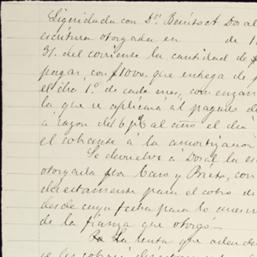 Liquidada con Dn. Benito A. Dosal
escritura otorgada en de 1
31. del corriente la cantidad de $
pagar, con $1000. que entrega de
el dia 1o. de cada mes, con
la que se aplicará al pago de
á razon del 6 p% al año el dia
el sobrante á la amortizacion
Se devuelve á Dosal la es
otorgada por Caro y Prieto, con
directamente para el cobro de
desde cuya fecha para lo
de la fianza que otorgó.
La renta que aden
se les cobran